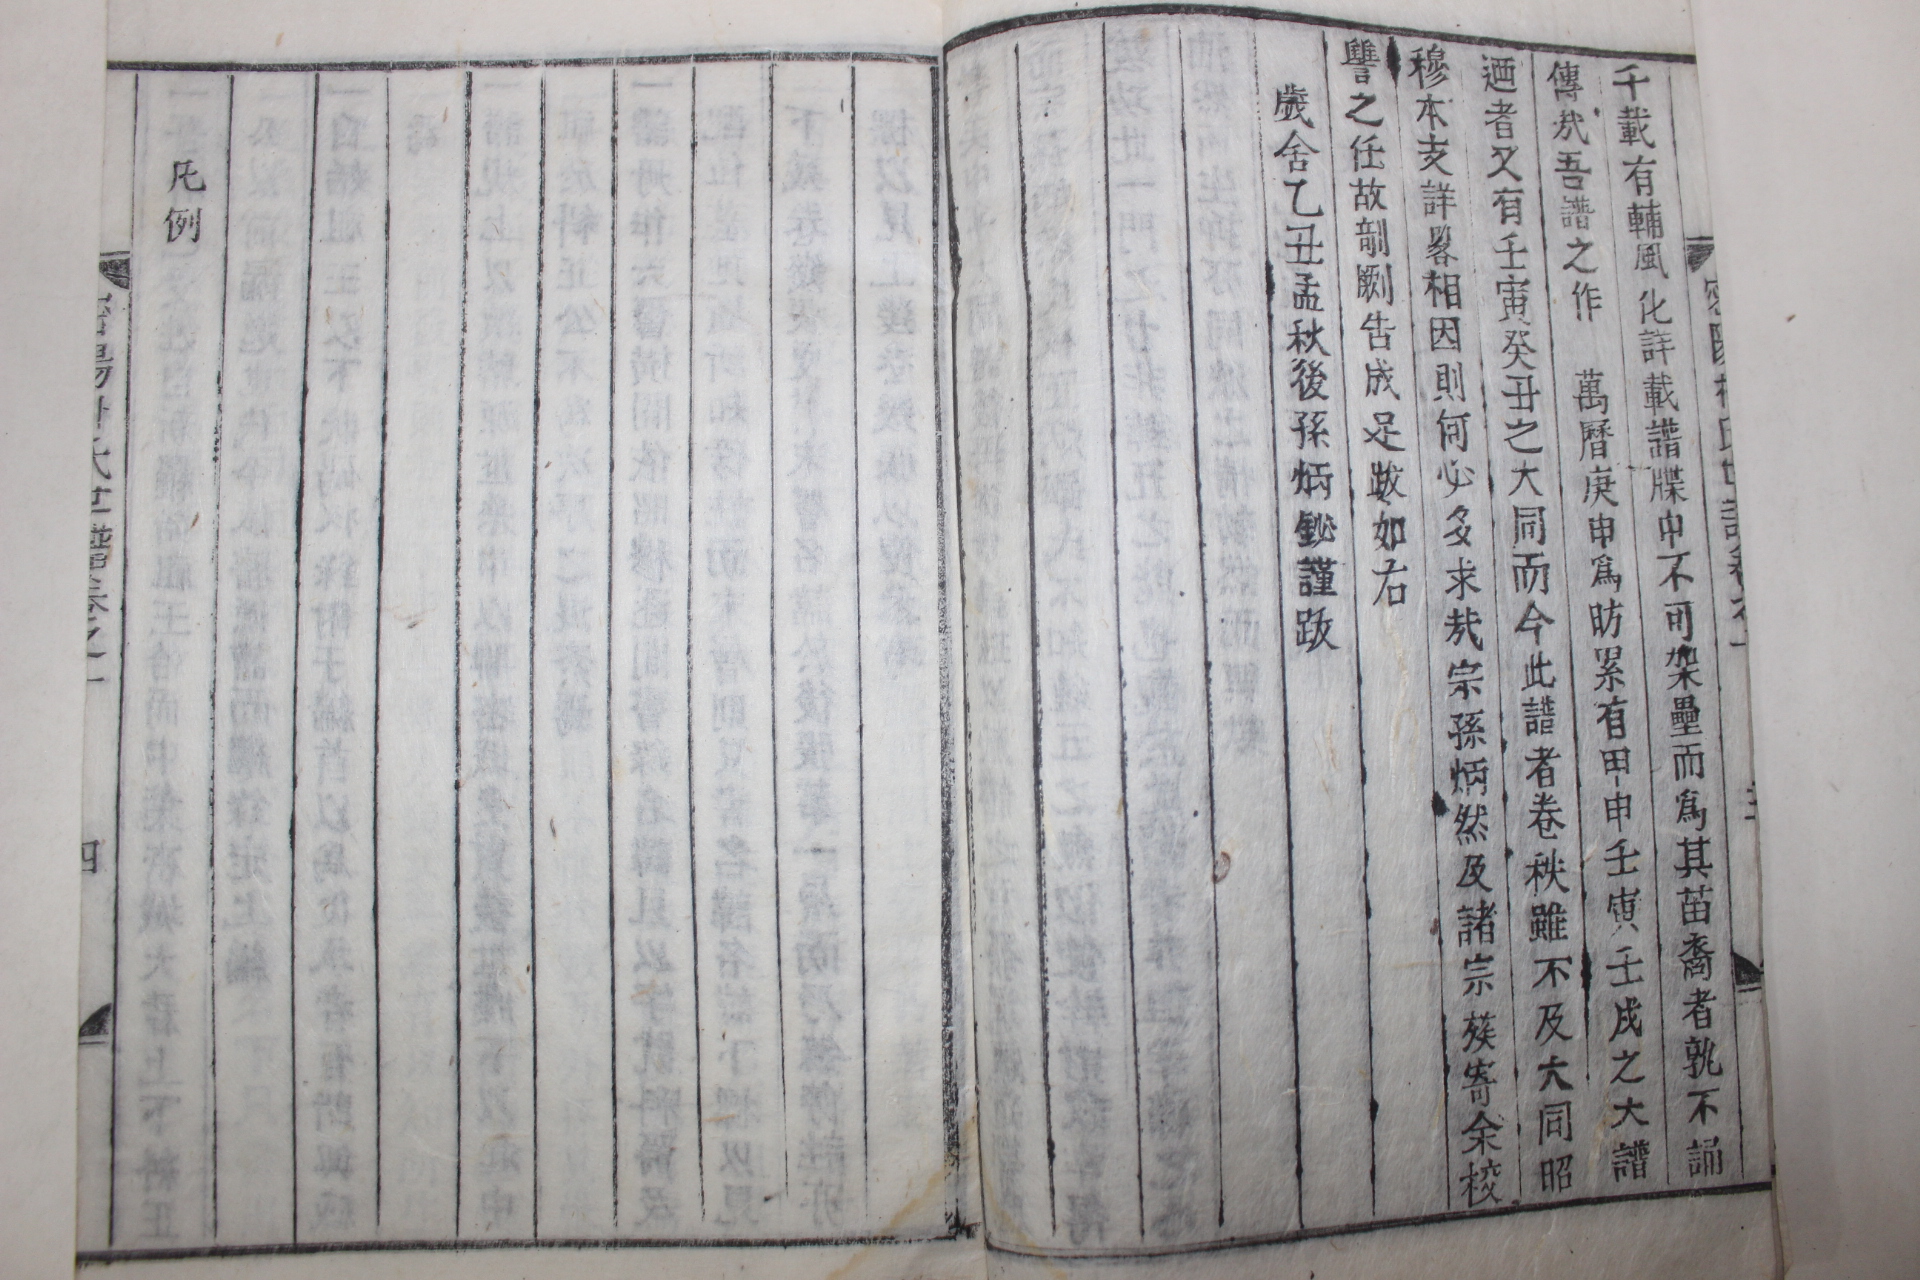 千載有輔風化詳載譜牒中不可架壘而爲其苗裔者孰不誦
傳㢤吾譜之作 萬曆庚申爲昉累有甲申壬寅壬戌之大譜
迺者又有壬寅癸丑之大同而今此譜者卷秩雖不及大同昭
穆本支詳畧相因則何必多求㢤宗孫炳然及諸宗蔟寄余校
讐之任故剞劂告成足跋如右
歲舍乙丑孟秋後孫炳鉍謹跋
凡例
四